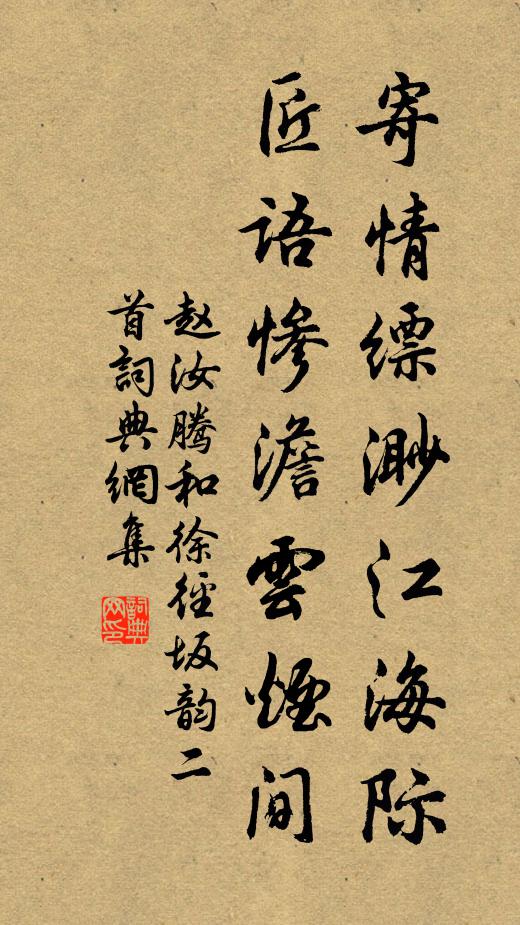 寄情縹渺江海际
匠語惨澹雲煙间
赵汝腾和徐径坂韵二
首詞典網集
詞典
网印